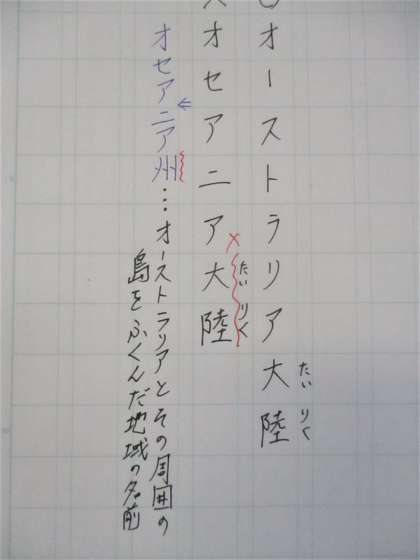 オーストラリア大陸
たいりく
オセアニア大陸
たいりく
オセアニア州…オーストラリアとその周囲の
島をふくんだ地域の名前